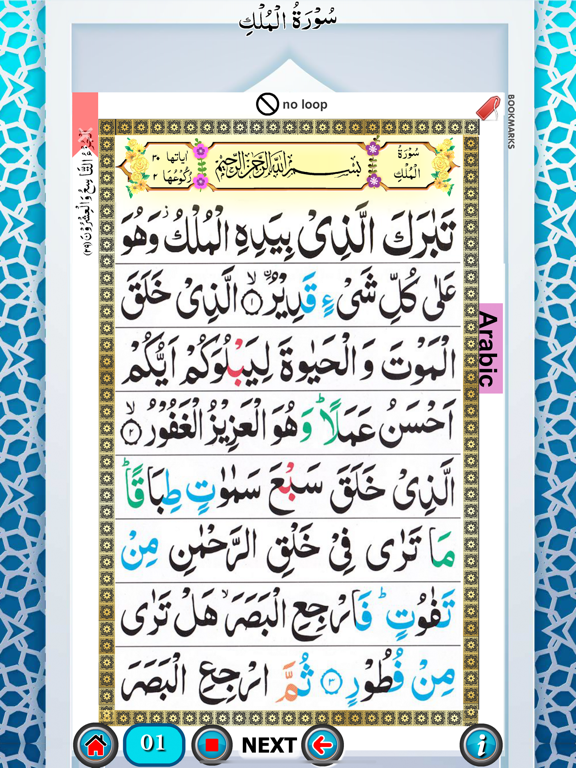 سُوْرَةُ الْمُلْكِ
no loop
BOOKMARKS
اَلْجُزْءُ التَّاسِعُ وَالْعِشْرُوْنَ (٢٩)
سُوْرَةُ الْمُلْكِ
بِسْمِ اللّٰهِ الرَّحْمٰنِ الرَّحِيْمِ
اٰيَاتُهَا ٣٠
رُكُوْعُهَا ٢
تَبٰرَكَ الَّذِىْ بِيَدِهِ الْمُلْكُ ز وَهُوَ
عَلٰى كُلِّ شَىْءٍ قَدِيْرُ ۨ ۙ ١ الَّذِىْ خَلَقَ
الْمَوْتَ وَالْحَيٰوةَ لِيَبْلُوَكُمْ اَيُّكُمْ
اَحْسَنُ عَمَلًا ؕ وَهُوَ الْعَزِيْزُ الْغَفُوْرُ ۙ ٢
الَّذِىْ خَلَقَ سَبْعَ سَمٰوٰتٍ طِبَاقًا ؕ
مَا تَرٰى فِىْ خَلْقِ الرَّحْمٰنِ مِنْ
تَفٰوُتٍ ؕ فَارْجِعِ الْبَصَرَ ۙ هَلْ تَرٰى
مِنْ فُطُوْرٍ ٣ ثُمَّ ارْجِعِ الْبَصَرَ
Arabic
01
NEXT
i